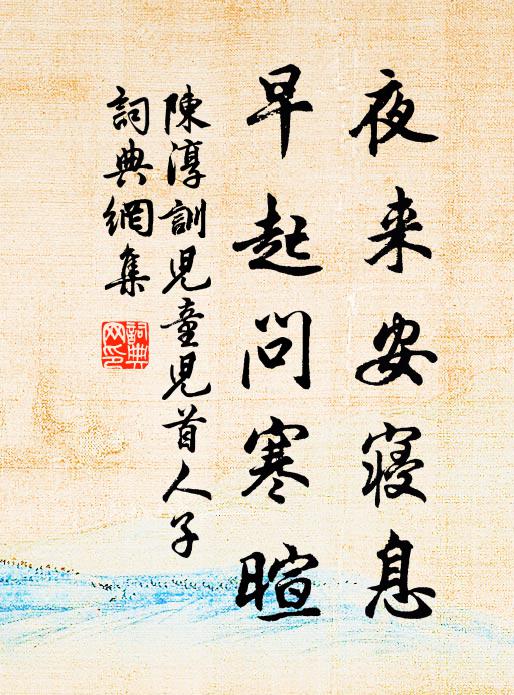 夜来安寝息
早起問寒暄
陳淳訓児童児首人子
詞典網集
詞典網印